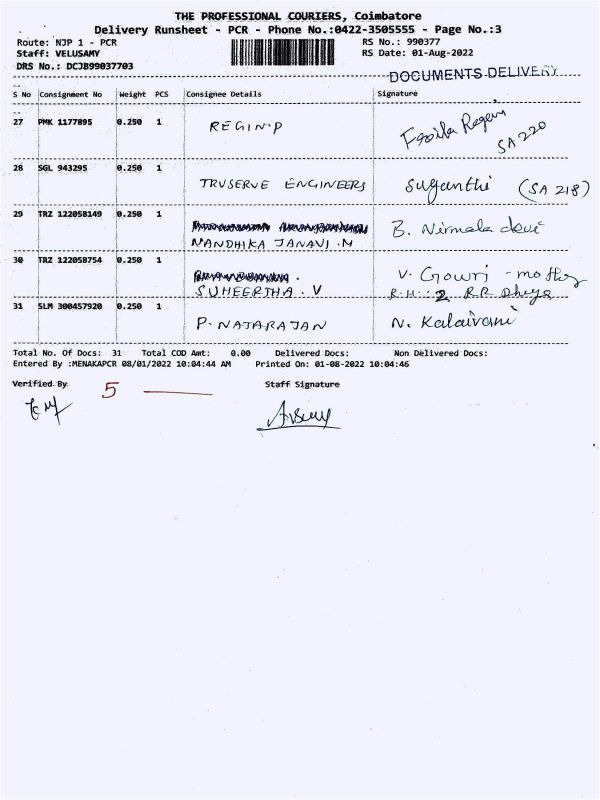 THE PROFESSIONAL COURIERS, Coimbatore
Delivery Runsheet - PCR - Phone No.:0422-3505555 - Page No.:3
Route: NJP 1 - PCR RS No.: 990377
Staff: VELUSAMY RS Date: 01-Aug-2022
DRS No.: DCJB99037703
DOCUMENTS DELIVERY
S No Consignment No Weight PCS Consignee Details Signature
27 PMK 1177895 0.250 1 REGIN.P Regin
SA 220
28 SGL 943295 0.250 1
TRUSERVE ENGINEERS Suganthi (SA 218)
29 TRZ 122058149 0.250 1 B. Nirmala devi
NANDHIKA JANAVI .N
30 TRZ 122058754 0.250 1 V. Gowri - mother
SUHEERTHA . V R.H: 2 RR
31 SLM 300457920 0.250 1
P. NATARAJAN N. Kalaivani
Total No. Of Docs: 31 Total COD Amt: 0.00 Delivered Docs: Non Delivered Docs:
Entered By :MENAKAPCR 08/01/2022 10:04:44 AM Printed On: 01-08-2022 10:04:46
Verified By 5 Staff Signature